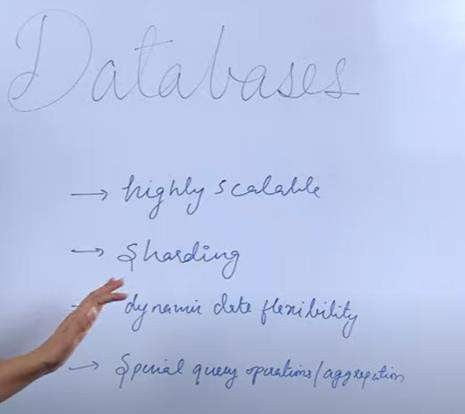 Databases
→ highly scalable
→ Sharding
→ dynamic data flexibility
→ Special query operations/aggregation